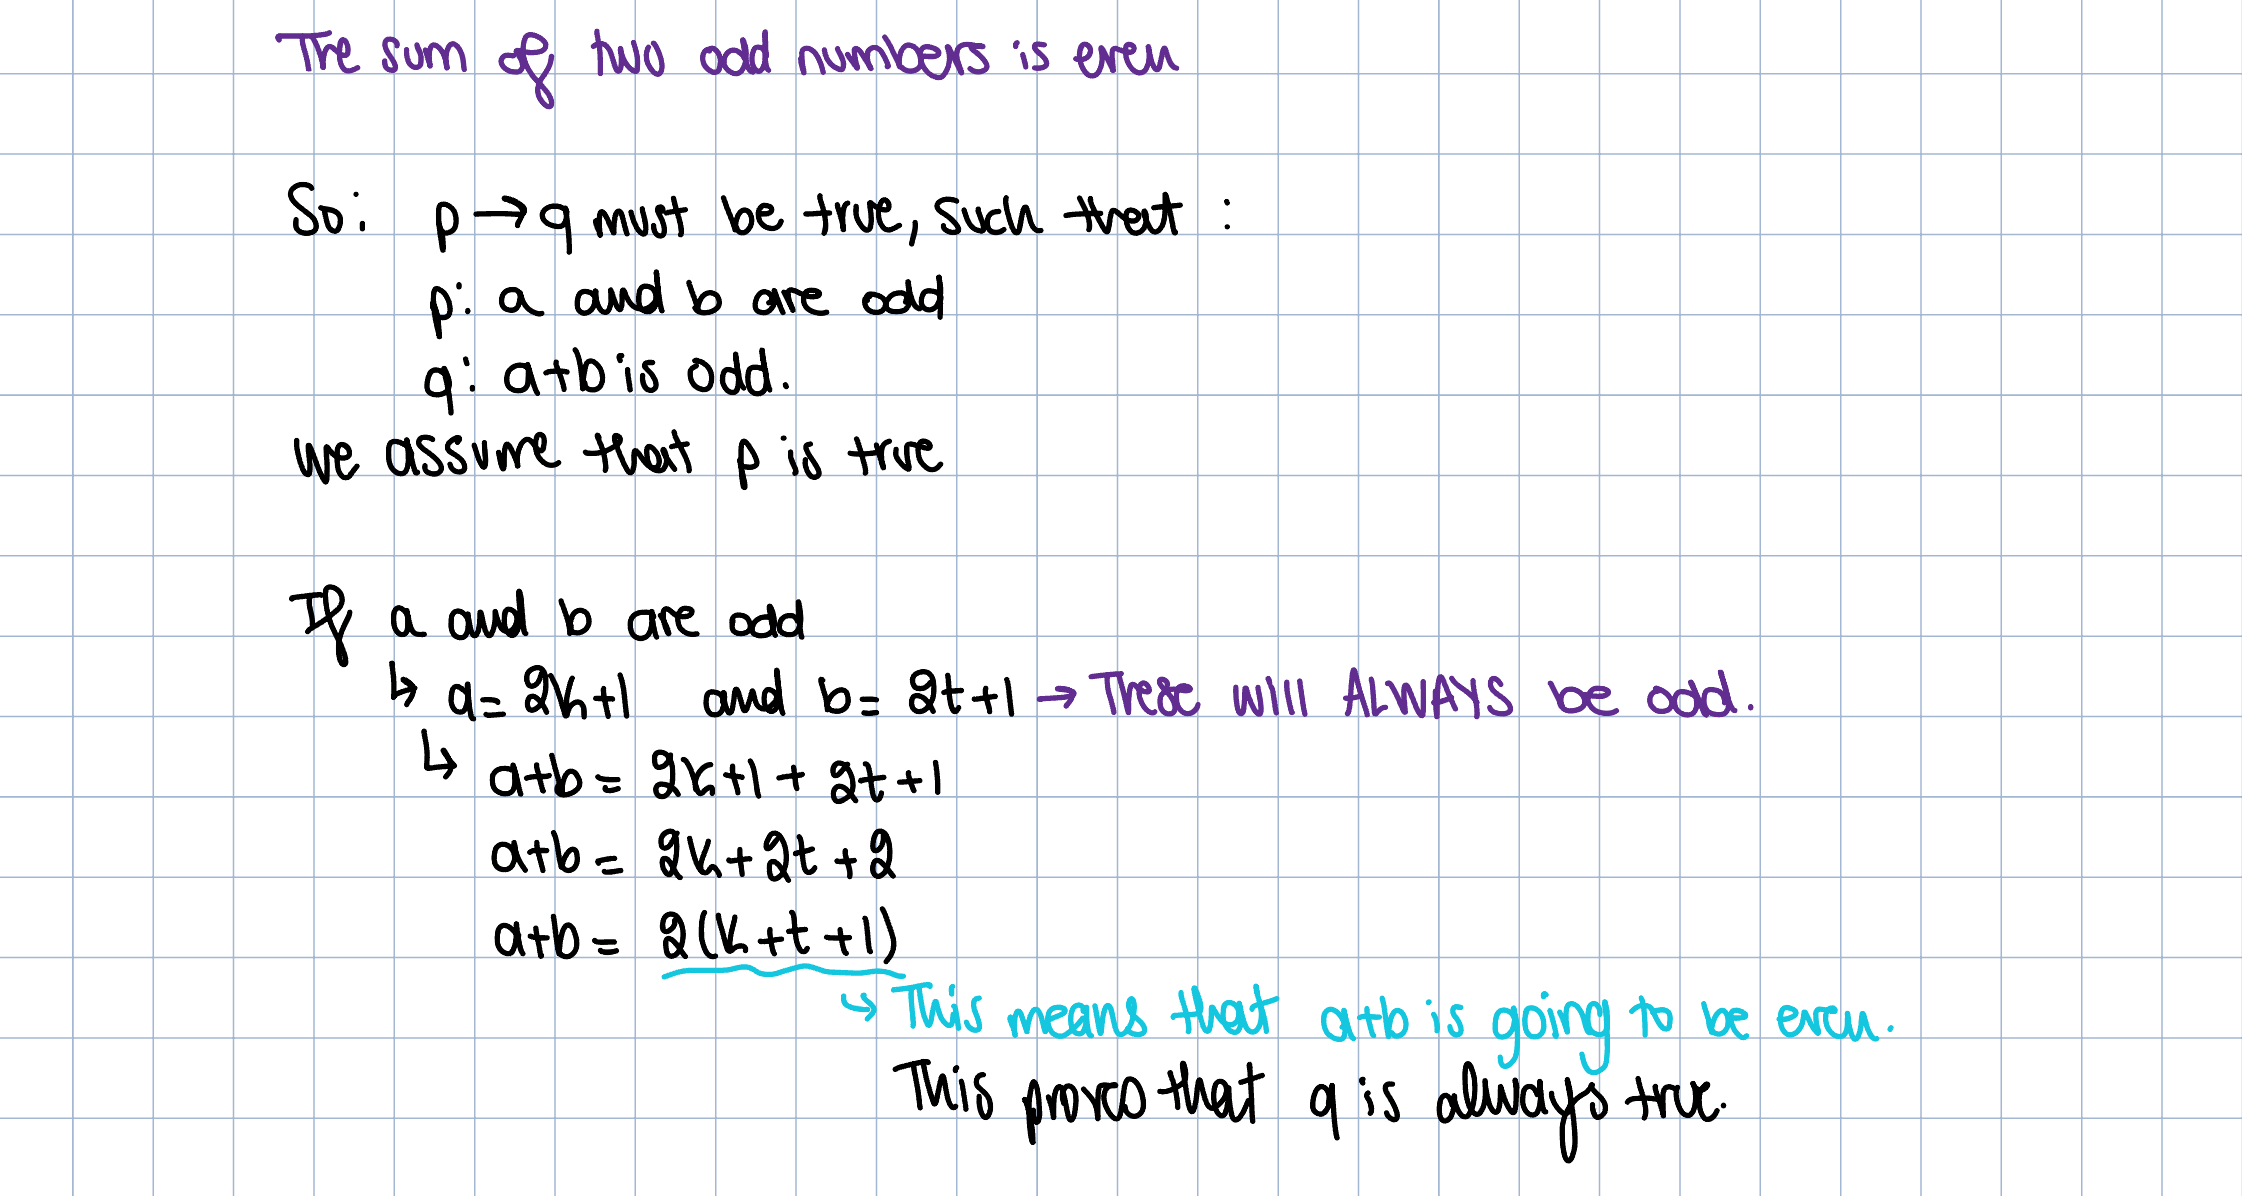 The sum of two odd numbers is even
So: p → q must be true, such that :
p: a and b are odd
q: a+b is odd.
we assume that p is true
If a and b are odd
↳ a = 2k+1 and b = 2t+1 → These will ALWAYS be odd.
↳ a+b = 2k+1 + 2t+1
a+b = 2k+2t+2
a+b = 2(k+t+1)
↳ This means that a+b is going to be even.
This proves that q is always true.